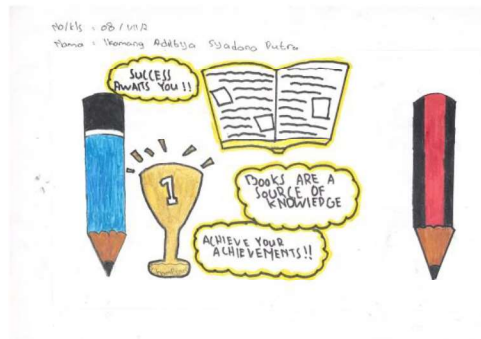 No/kls : 08 / VIII A
Nama : Ikomang Additya Syadana Putra
SUCCESS
AWAITS YOU !!
1
BOOKS ARE A
SOURCE OF
KNOWLEDGE
ACHIEVE YOUR
ACHIEVEMENTS!!